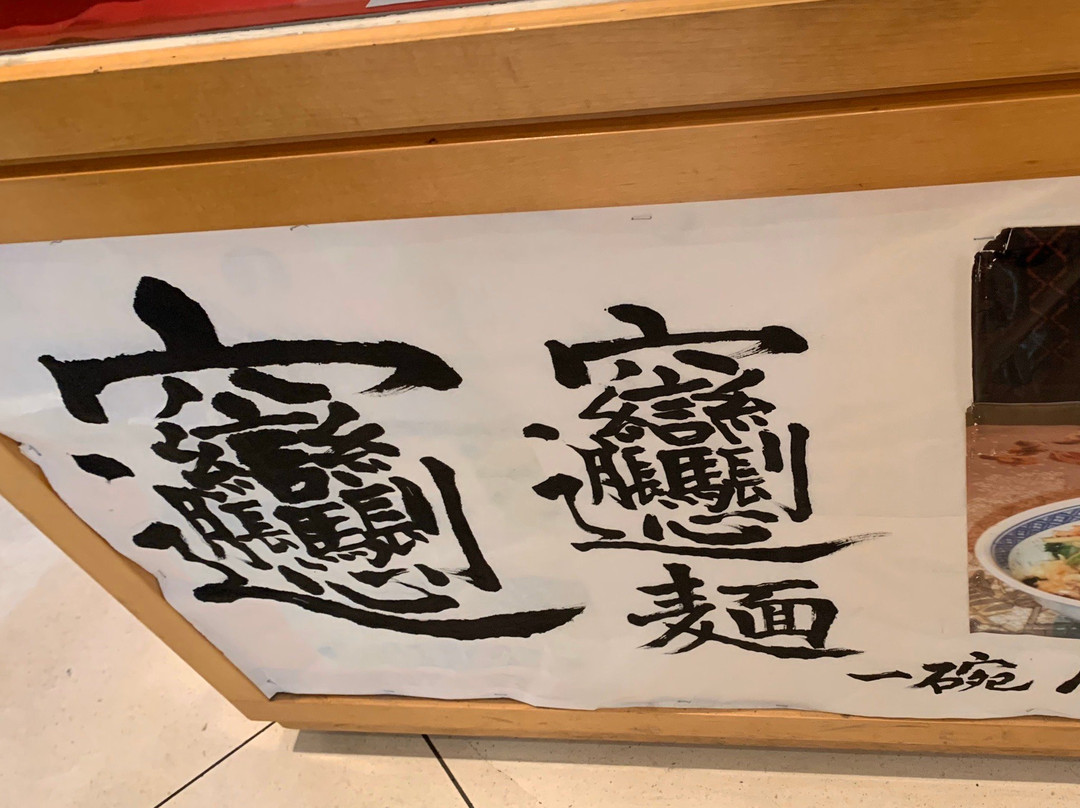 𰻞𰻞
麺
一碗